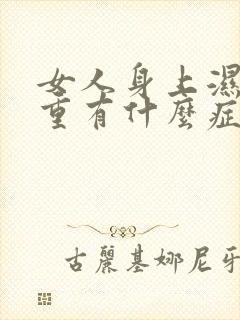 女人身上濕
重有什麼症
古麗基娜尼牙